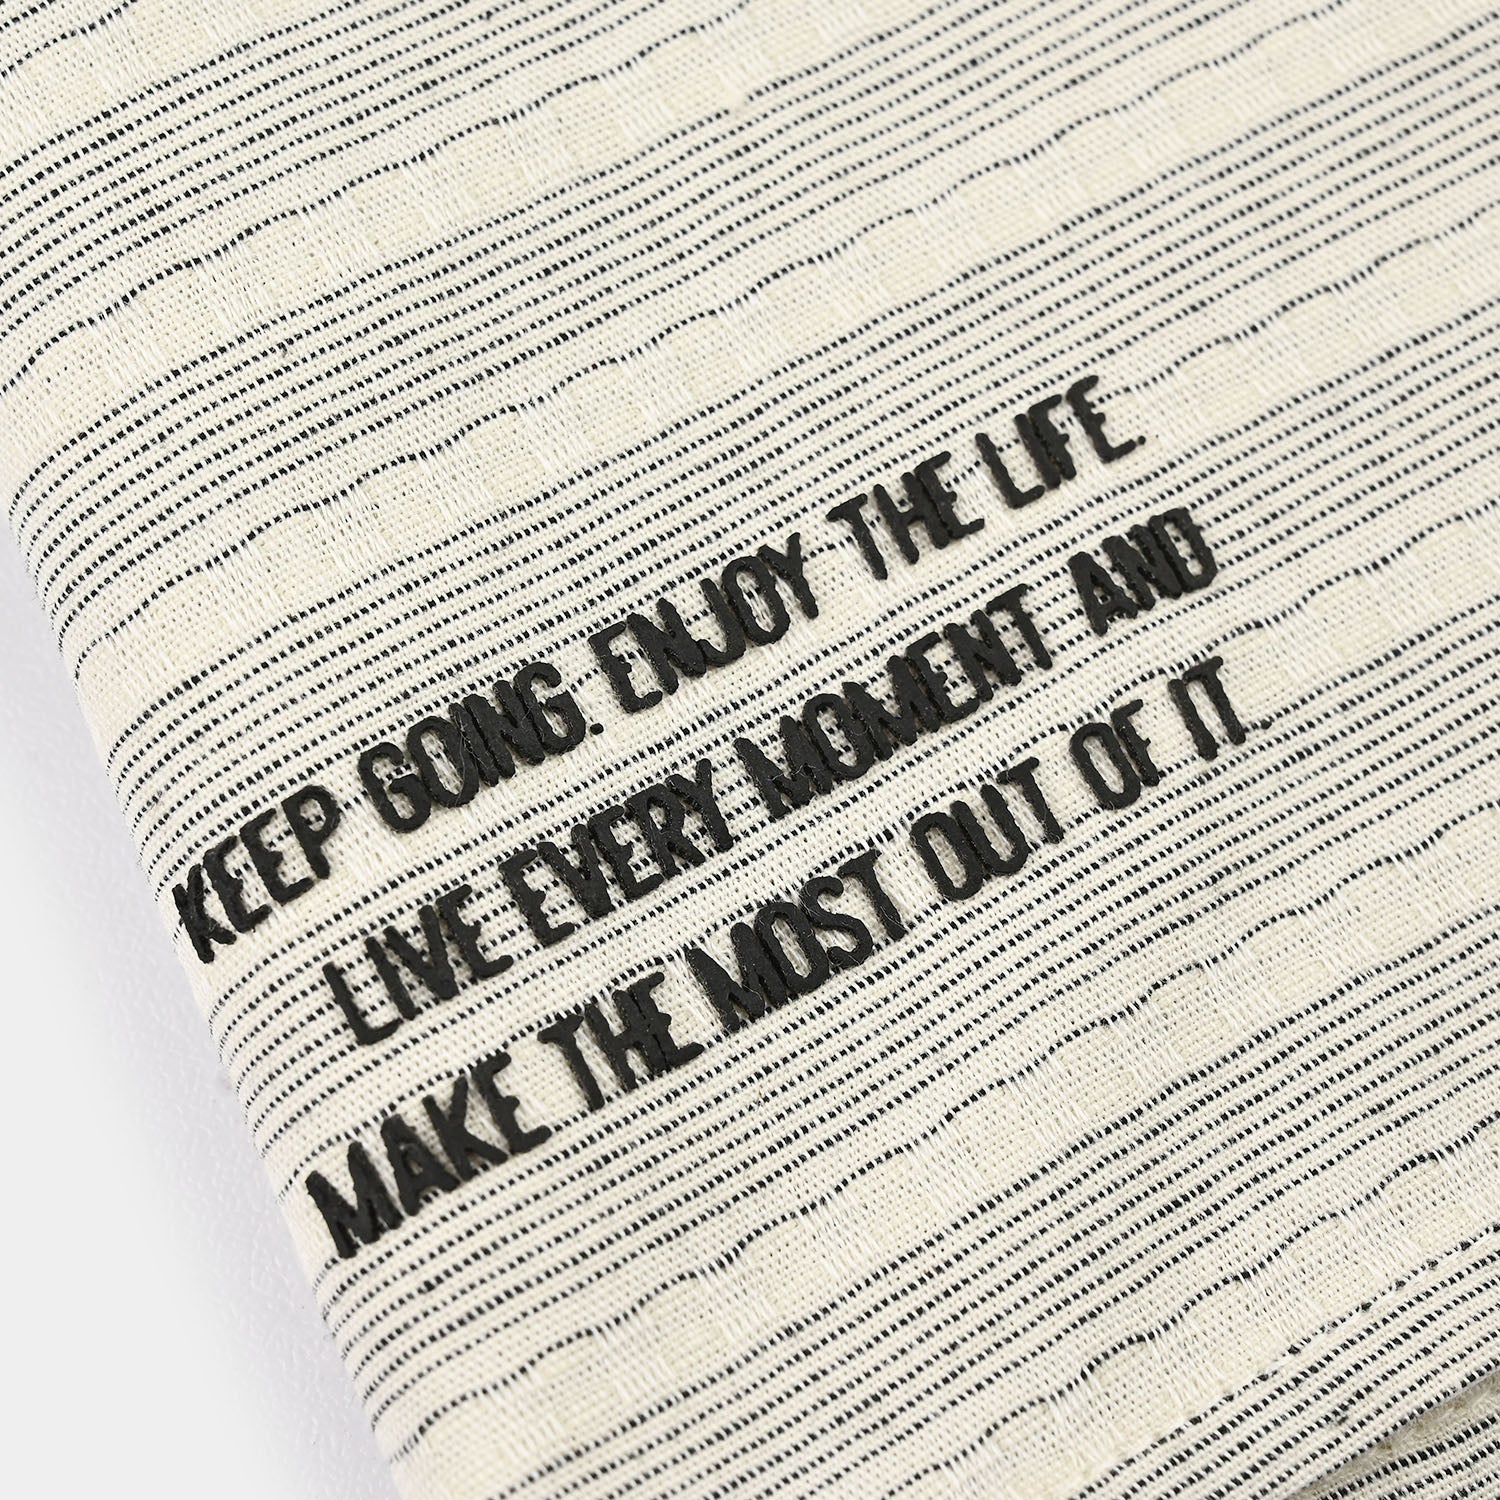 KEEP GOING. ENJOY THE LIFE.
LIVE EVERY MOMENT AND
MAKE THE MOST OUT OF IT.